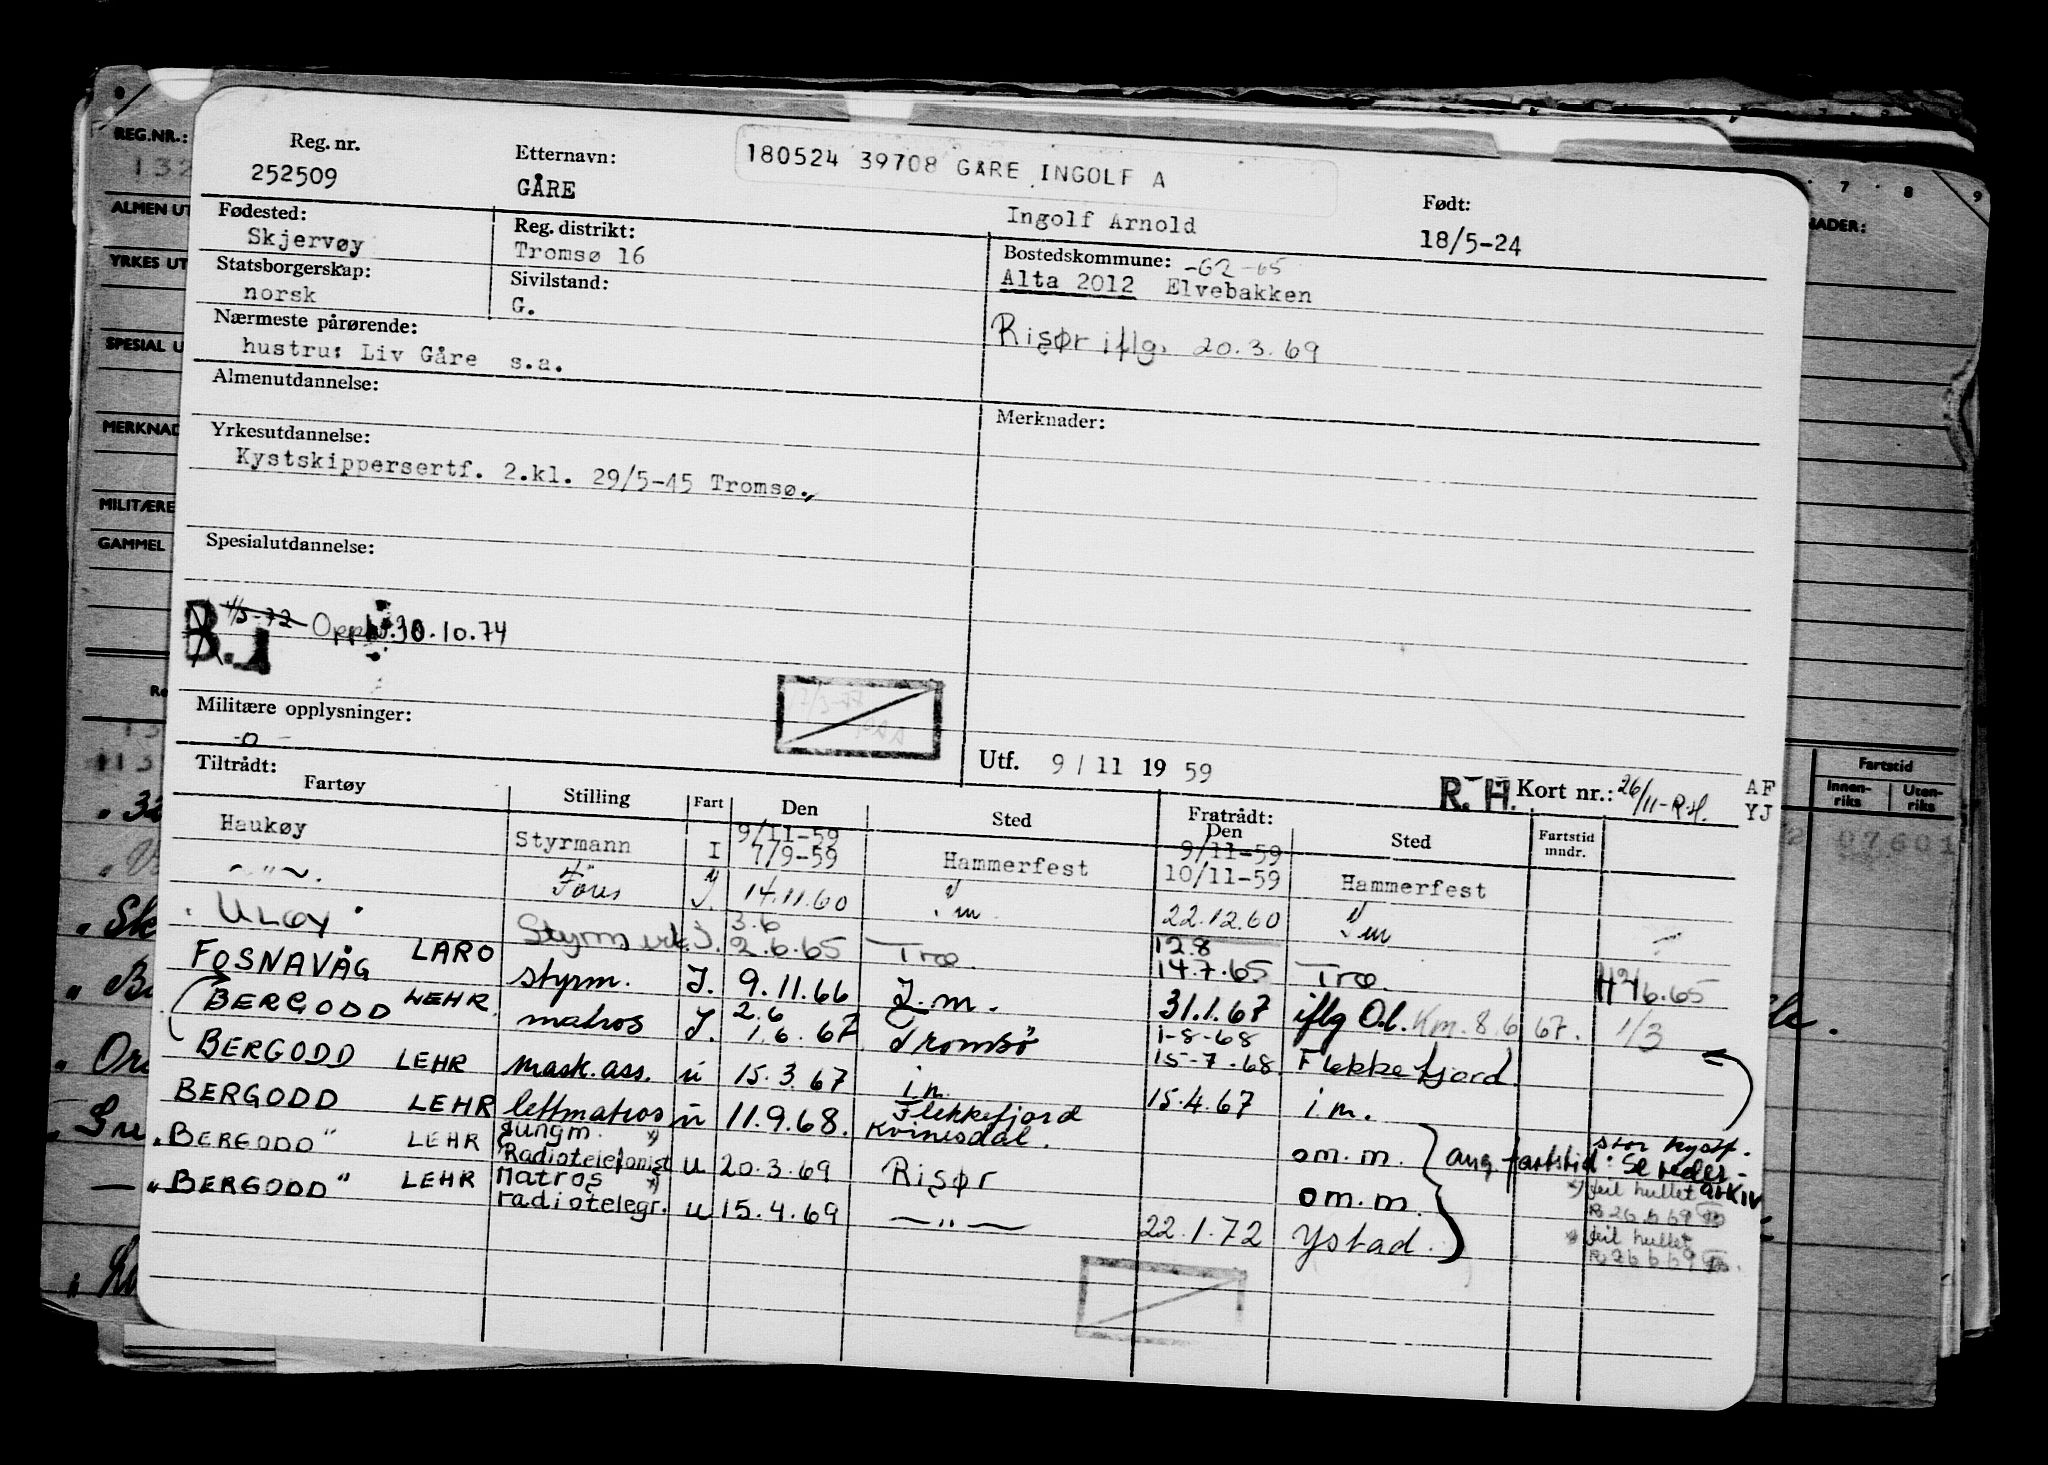 REG.NR.:
Reg. nr.
252509
Etternavn:
GÅRE
180524 39708 GÅRE INGOLF A
Ingolf Arnold
Født:
18/5-24
7 8 9
ALMEN UT
Fødested:
Skjervøy
Reg. distrikt:
Tromsø 16
Bostedskommune: -62-65
Alta 2012 Elvebakken
YRKES UT
Statsborgerskap:
norsk
Sivilstand:
G.
Nærmeste pårørende:
hustru: Liv Gåre s.a.
Risør iflg. 20.3.69
SPESIAL U
Almenutdannelse:
Merknader:
MERKNAD
Yrkesutdannelse:
Kystskippersertf. 2.kl. 29/5-45 Tromsø.
MILITÆRE
GAMMEL
Spesialutdannelse:
30.10.74
Militære opplysninger:
-0-
Utf. 9/11 1959
R. H. Kort nr.: 26/11-R.H.
AF
YJ
Fartstid
Innenriks
Utenriks
07601
Tiltrådt:
Fartøy Stilling Fart Den Sted
Fratrådt:
Den Sted Fartstid mndr.
Haukøy Styrmann I 9/11-59 7/9-59 Hammerfest 9/11-59 10/11-59 Hammerfest
- " -. J. 14.11.60 " m. 22.12.60 " m
ULØY J. 3.6 2.6.65 Troe. 12.8 14.7.65 Troe.
FOSNAVÅG LARO styrm. J. 9.11.66 J.m. 31.1.67 iflg O.l. Km. 8.6 67. 1/3
BERGODD LEHR. matros J. 2.6 1.6.67 Tromsø 1-8-68 15-7-68 Flekkefjord
BERGODD LEHR mask.ass. u 15.3.67 i.m. 15.4.67 i.m.
BERGODD LEHR lettmatros u 11.9.68. Flekkefjord Kvinesdal. om.m. ang. fartstid: Se rederarkiv
stor kystf.
"BERGODD" LEHR Jungm. *) Radiotelefonist u 20.3.69 Risør om.m. *) feil hullet R 26.6.69
- "BERGODD" LEHR Matros *) radiotelegr. u 15.4.69 - " - 22.1.72 Ystad. *) feil hullet R 26.6.69